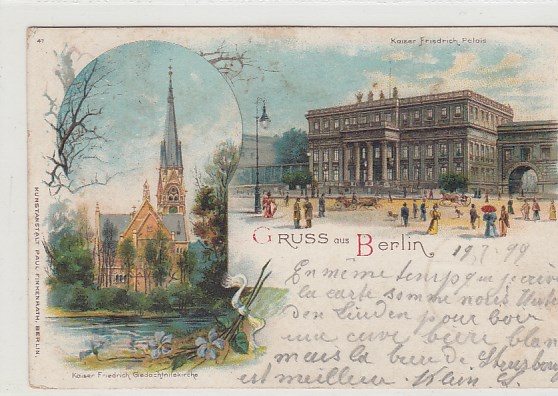 41
Kaiser Friedrich Palais
GRUSS aus Berlin
19.7.99
En même temps que j'écris
la carte somme nous Unter
den Linden pour boir
une cuve bière blan
mais la bière de
est meilleur. Klein
KUNSTANSTALT PAUL FINKENRATH, BERLIN.
Kaiser Friedrich Gedächtniskirche